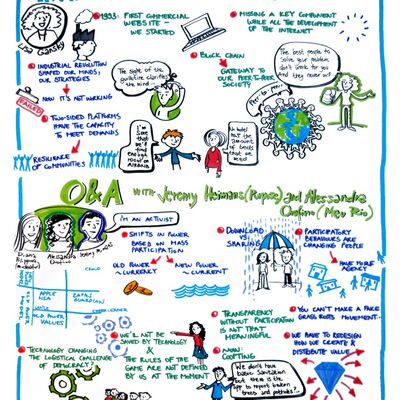 Lisa Gansky
1993: FIRST COMMERCIAL
WEBSITE –
WE STARTED
MISSING A KEY COMPONENT
WHILE ALL THE DEVELOPMENT
OF THE INTERNET
INDUSTRIAL REVOLUTION
SHAPED OUR MINDS;
OUR STRATEGIES
The sight of the
guillotine clarifies
the mind
BLOCK CHAIN
GATEWAY TO
OUR PEER-TO-PEER
SOCIETY
The best people to
solve your problem
don't work for you
and they never will
Peer-to-peer
FAILED
NOW IT'S NOT WORKING
TWO-SIDED PLATFORMS
HAVE THE CAPACITY
TO MEET DEMANDS
RESILIENCE
OF COMMUNITIES
I'm sure
that we'll
find
enough
room on
Airbnb
No hotel
has the
amount
of beds
that we
need
Q&A WITH Jeremy Heimans (Purpose) and Alessandra
Orofino (Meu Rio)
I'm AN ACTIVIST
SHIFTS IN POWER
BASED ON MASS
PARTICIPATION
OLD POWER
~ CURRENCY
NEW POWER
~ CURRENT
DOWNLOAD
VS
SHARING
PARTICIPATORY
BEHAVIOURS ARE
CHANGING PEOPLE
HAVE MORE
AGENCY
APPLE
NSA
GUARDIAN
OLD POWER
VALUES
TRANSPARENCY
WITHOUT PARTICIPATION
IS NOT THAT
MEANINGFUL
YOU CAN'T MAKE A FAKE
GRASS ROOTS MOVEMENT...
TECHNOLOGY CHANGING
THE LOGISTICAL CHALLENGE
OF DEMOCRACY?
WE'LL NOT BE
SAVED BY TECHNOLOGY
&
THE RULES OF THE
GAME ARE NOT DEFINED
BY US AT THE MOMENT
NON
COPTING
We don't have
basic sanitation
but there is the
app to report broken
trees and potholes?..
WE HAVE TO REDESIGN
HOW WE CREATE &
DISTRIBUTE VALUE